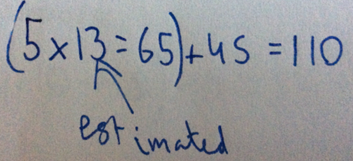 (5×13=65)+45 =110
estimated